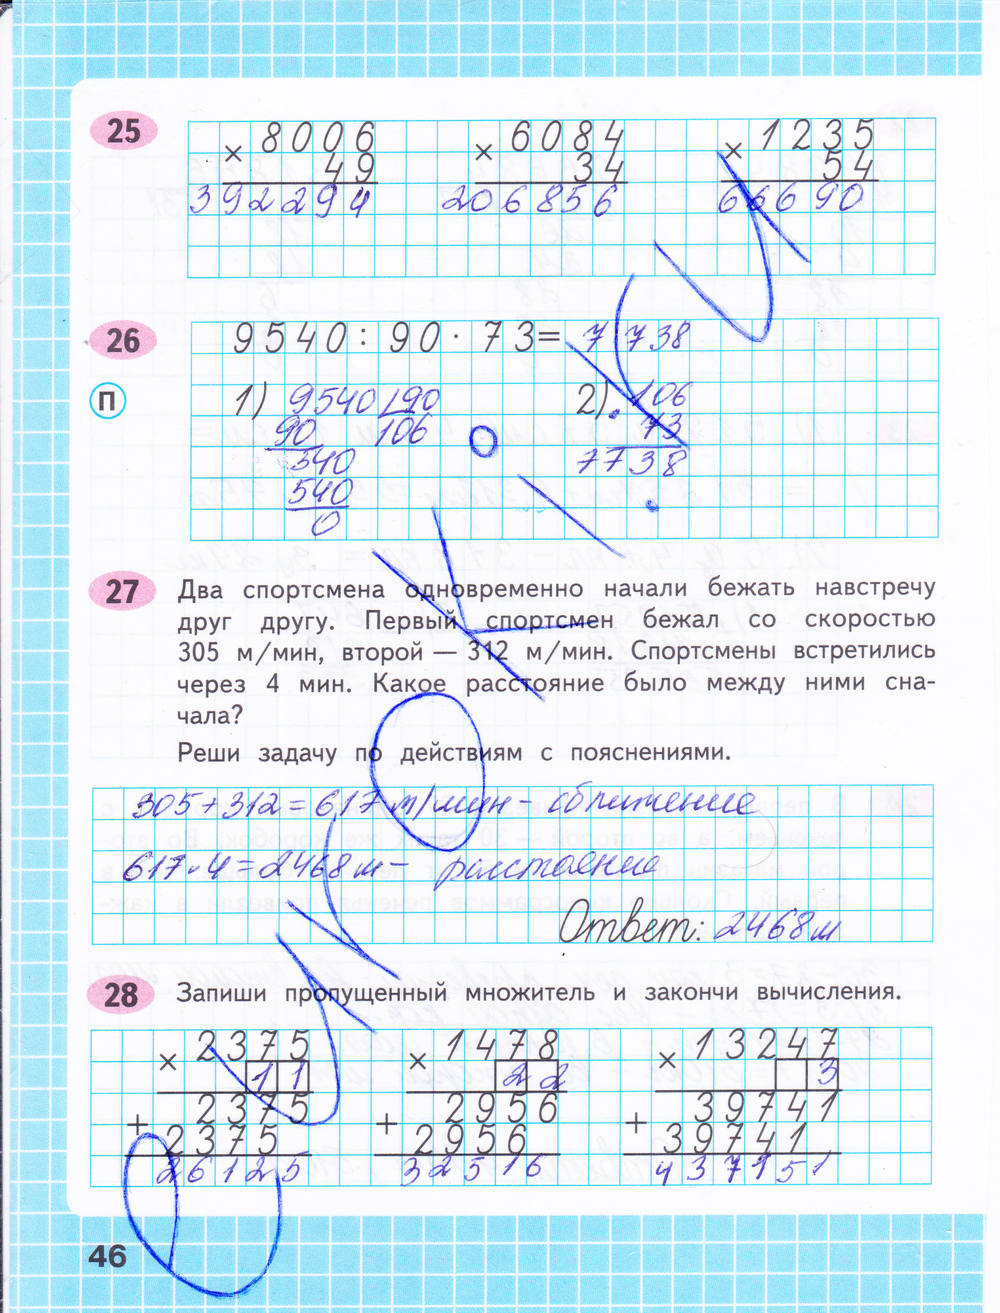 25
× 8006   × 6084   × 1235
49   34   54
392294   206856   66690
26
9540 : 90 · 73 = 7738
П
1) 9540 90   2) 106
90   106   73
540   7738
540
0
27
Два спортсмена одновременно начали бежать навстречу
друг другу. Первый спортсмен бежал со скоростью
305 м/мин, второй — 312 м/мин. Спортсмены встретились
через 4 мин. Какое расстояние было между ними сна-
чала?
Реши задачу по действиям с пояснениями.
305+312=617 м/мин – сближение
617·4=2468 м – расстояние
Ответ: 2468 м
28
Запиши пропущенный множитель и закончи вычисления.
× 2375   × 1478   × 13247
11   22   3
+ 2375   + 2956   + 39741
2375   2956   39741
26125   32516   437151
46